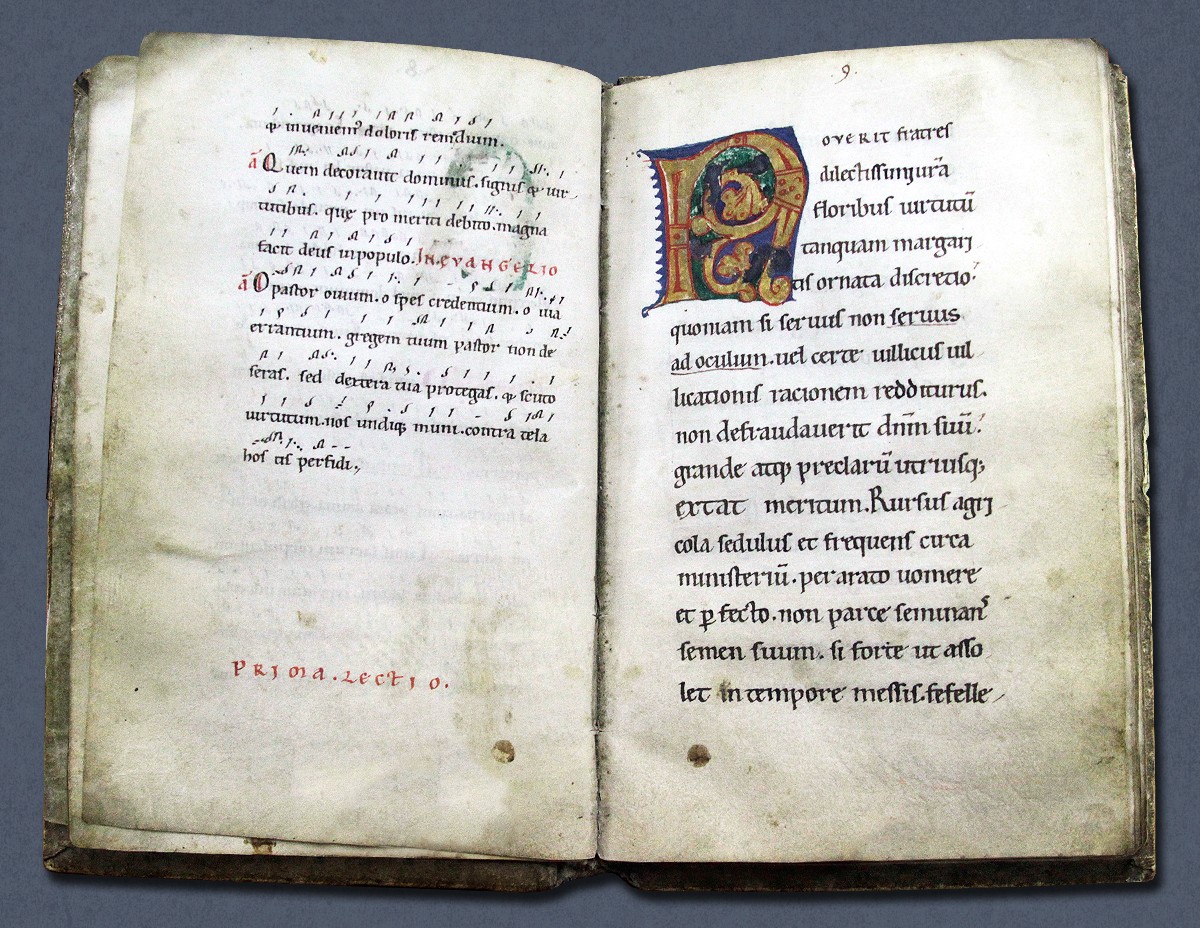 q̃ inueniem᷒ doloris remediũm.
ã Quem decorauit dominus. signis q̃ uir-
tutibus. quę pro meriti debito. magna
facit deus in populo. IN EVANGELIO
ã O pastor ouium. o spes credentium. o uia
errantium. gregem tuum pastor non de
seras. sed dextera tua protegas. q̃ scuto
uirtutum. nos undiq; muni. contra tela
hos tis perfidi.,
PRIMA. LECTIO.
9.
NOVERIT fratres
dilectissimi ura̅
floribus uirtutu̅
tanquam margari
tis ornata discretio.
quoniam si seruus non seruus
ad oculum. uel certe uillicus uil
licationis racionem redditurus.
non defraudauerit dnm̅ suu̅.
grande atq; preclaru̅ utriusq;
extat meritum. Rursus agri
cola sedulus et frequens circa
ministeriu̅. per arato uomere
et ꝑfecto. non parce seminans
semen suum. si forte ut asso
let in tempore messis. fefelle-